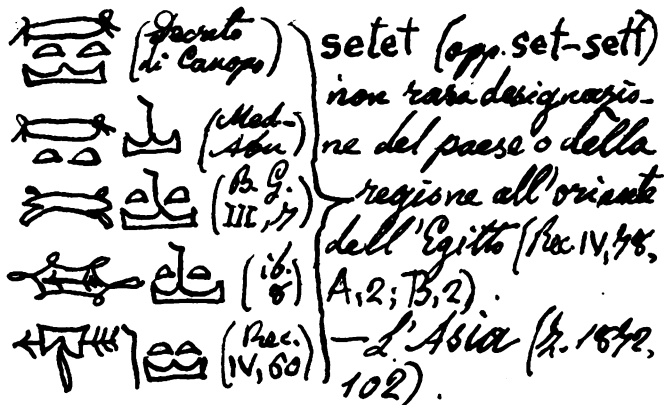 (Decreto
di Canopo)
(Med-
Abu)
(B. G.
III, 7)
(ib.
8)
(Rec.
IV, 60)
setet (opp. set-sett)
non rara designazio-
ne del paese o della
regione all'oriente
dell'Egitto (Rec. IV, 78,
A, 2; B, 2).
— L'Asia (Z. 1872,
102).